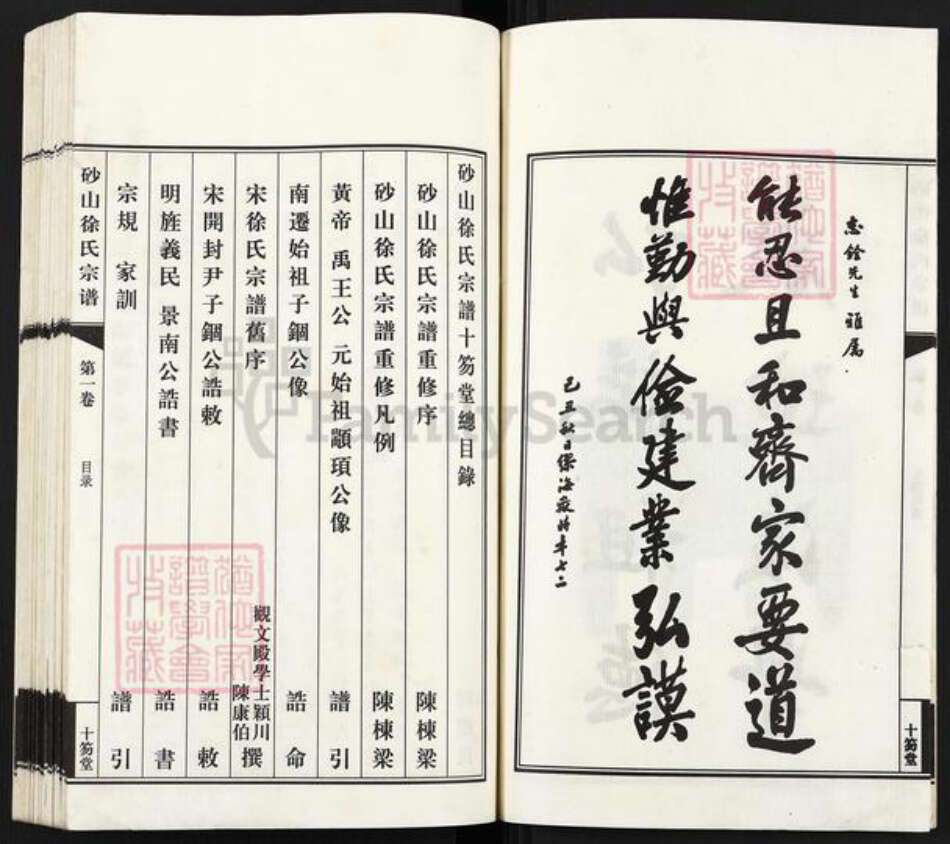 志銓先生雅屬
能忍且和齊家要道
惟勤與儉建業弘謨
己丑秋日梁海敬時年七二
十笏堂
砂山徐氏宗譜十笏堂總目錄
砂山徐氏宗譜重修序 陳棟梁
砂山徐氏宗譜重修凡例 陳棟梁
黃帝 禹王公 元始祖顓頊公像 譜引
南遷始祖子錮公像 誥命
宋徐氏宗譜舊序 觀文殿學士潁川陳康伯撰
宋開封尹子錮公誥敕 誥敕
明旌義民 景南公誥書 誥書
宗規 家訓 譜引
砂山徐氏宗谱 第一卷 目录 十笏堂
FamilySearch
猶他家譜學會收藏
猶他家譜學會收藏